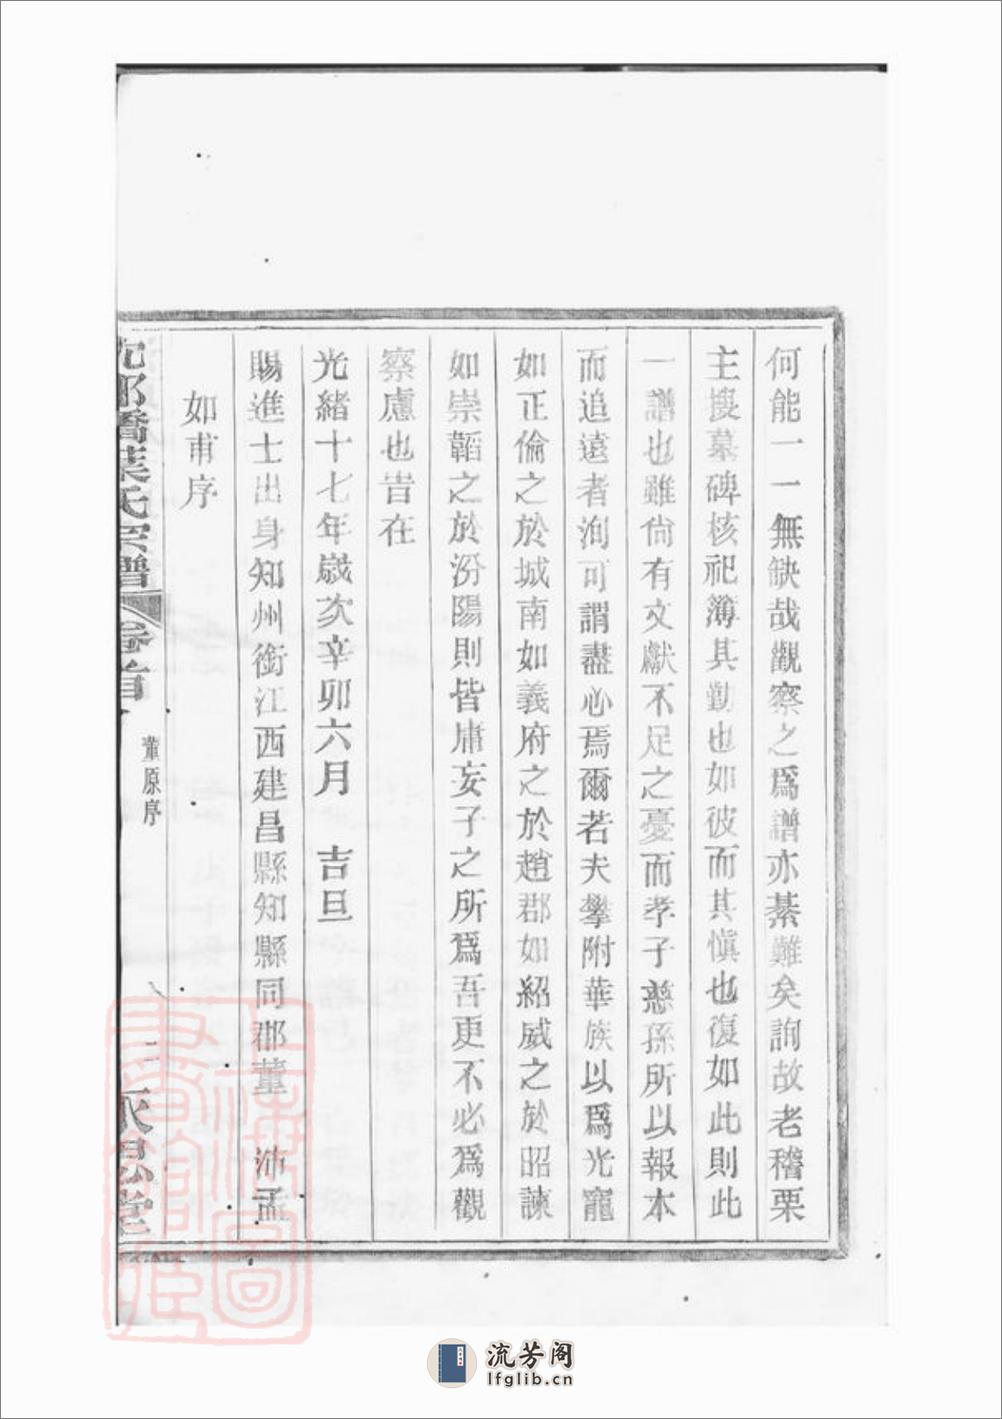 何能一一無缺哉觀察之爲譜亦綦難矣詢故老稽栗
主搜墓碑核祀簿其勤也如彼而其愼也復如此則此
一譜也雖尙有文獻不足之憂而孝子慈孫所以報本
而追遠者洵可謂盡心焉爾若夫攀附華族以爲光寵
如正倫之於城南如義府之於趙郡如紹威之於昭諫
如崇韜之於汾陽則皆庸妄子之所爲吾更不必爲觀
察慮也吿在
光緒十七年歲次辛卯六月 吉旦
賜進士出身知州銜江西建昌縣知縣同郡董 沛孟
如甫序
橋葉氏宗譜 卷首
董原序
二
流芳阁
lfglib.cn